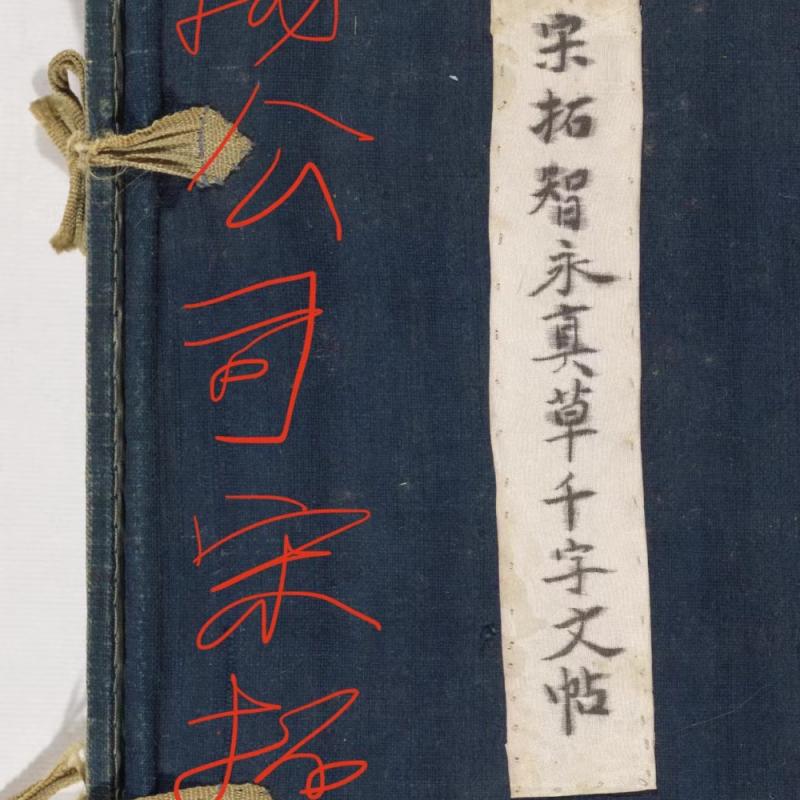 宋拓智永真草千字文帖
公司宋拓